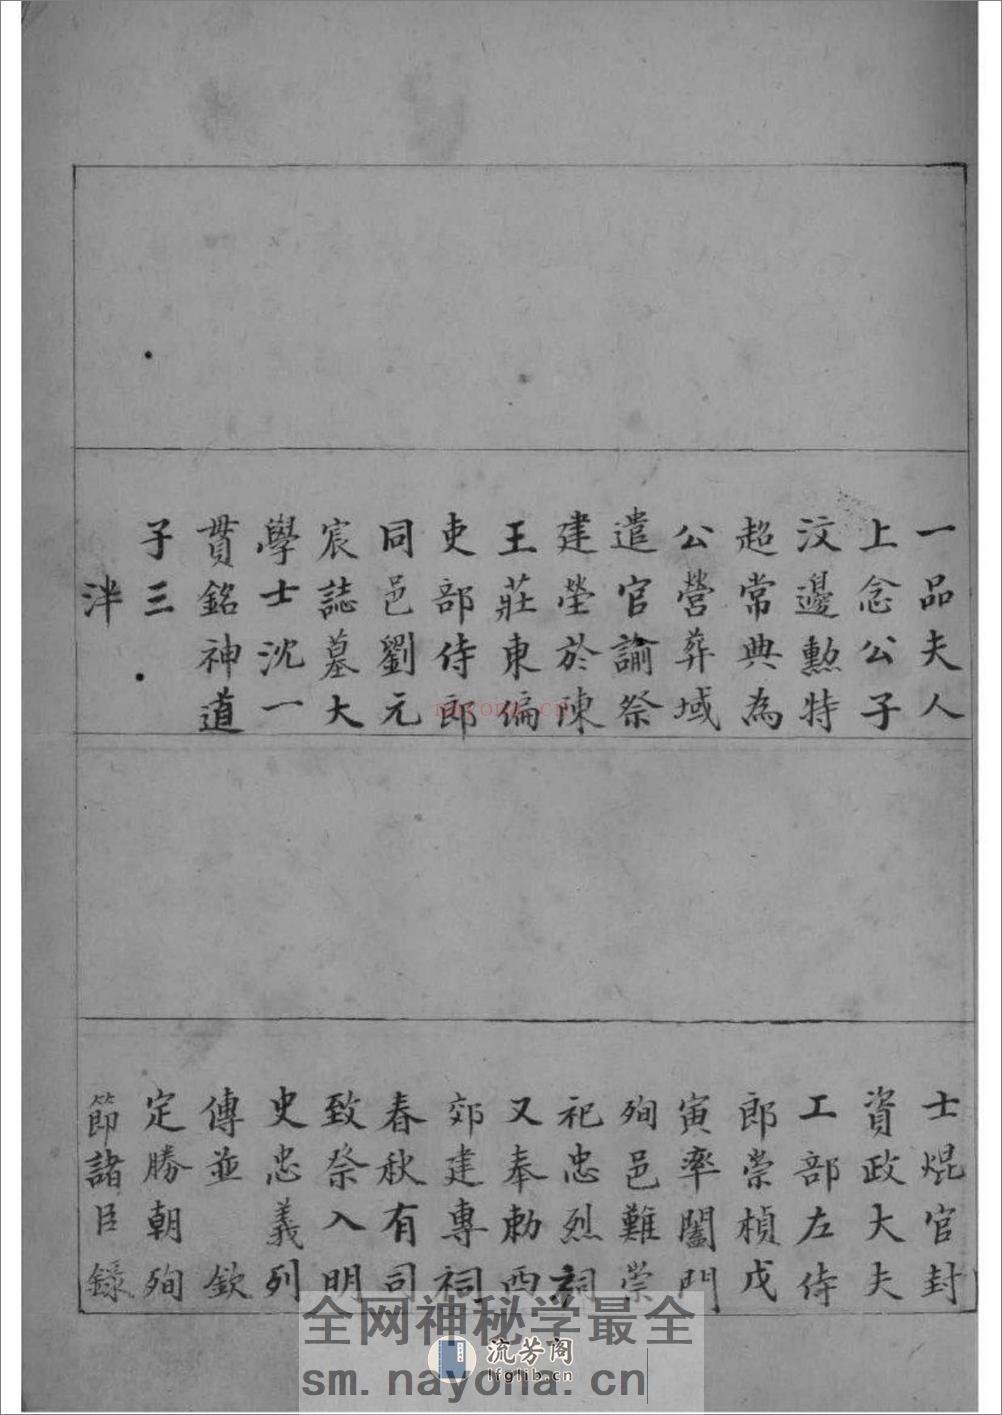 一品夫人
上念公子
汶邊勲特
超常典為
公營葬域
遣官諭祭
建塋於陳
王莊東偏
吏部侍郎
同邑劉元
宸誌墓大
學士沈一
貫銘神道
子三
泮
士焜官封
資政大夫
工部左侍
郎崇楨戊
寅率闔門
殉邑難崇
祀忠烈祠
又奉勅西
郊建專祠
春秋有司
致祭入明
史忠義列
傳並欽
定勝朝殉
節諸臣錄
nayona.cn
全网神秘学最全
流芳阁
lfglib.cn
sm.nayona.cn